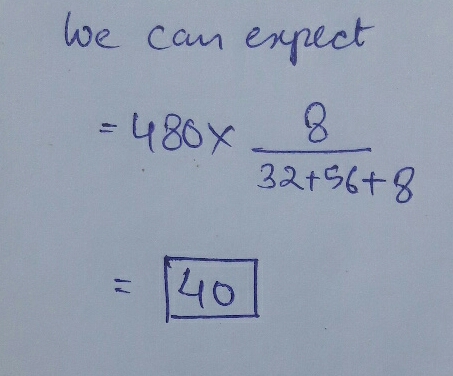 We can expect
= 480 x 8
32+56+8
= 40